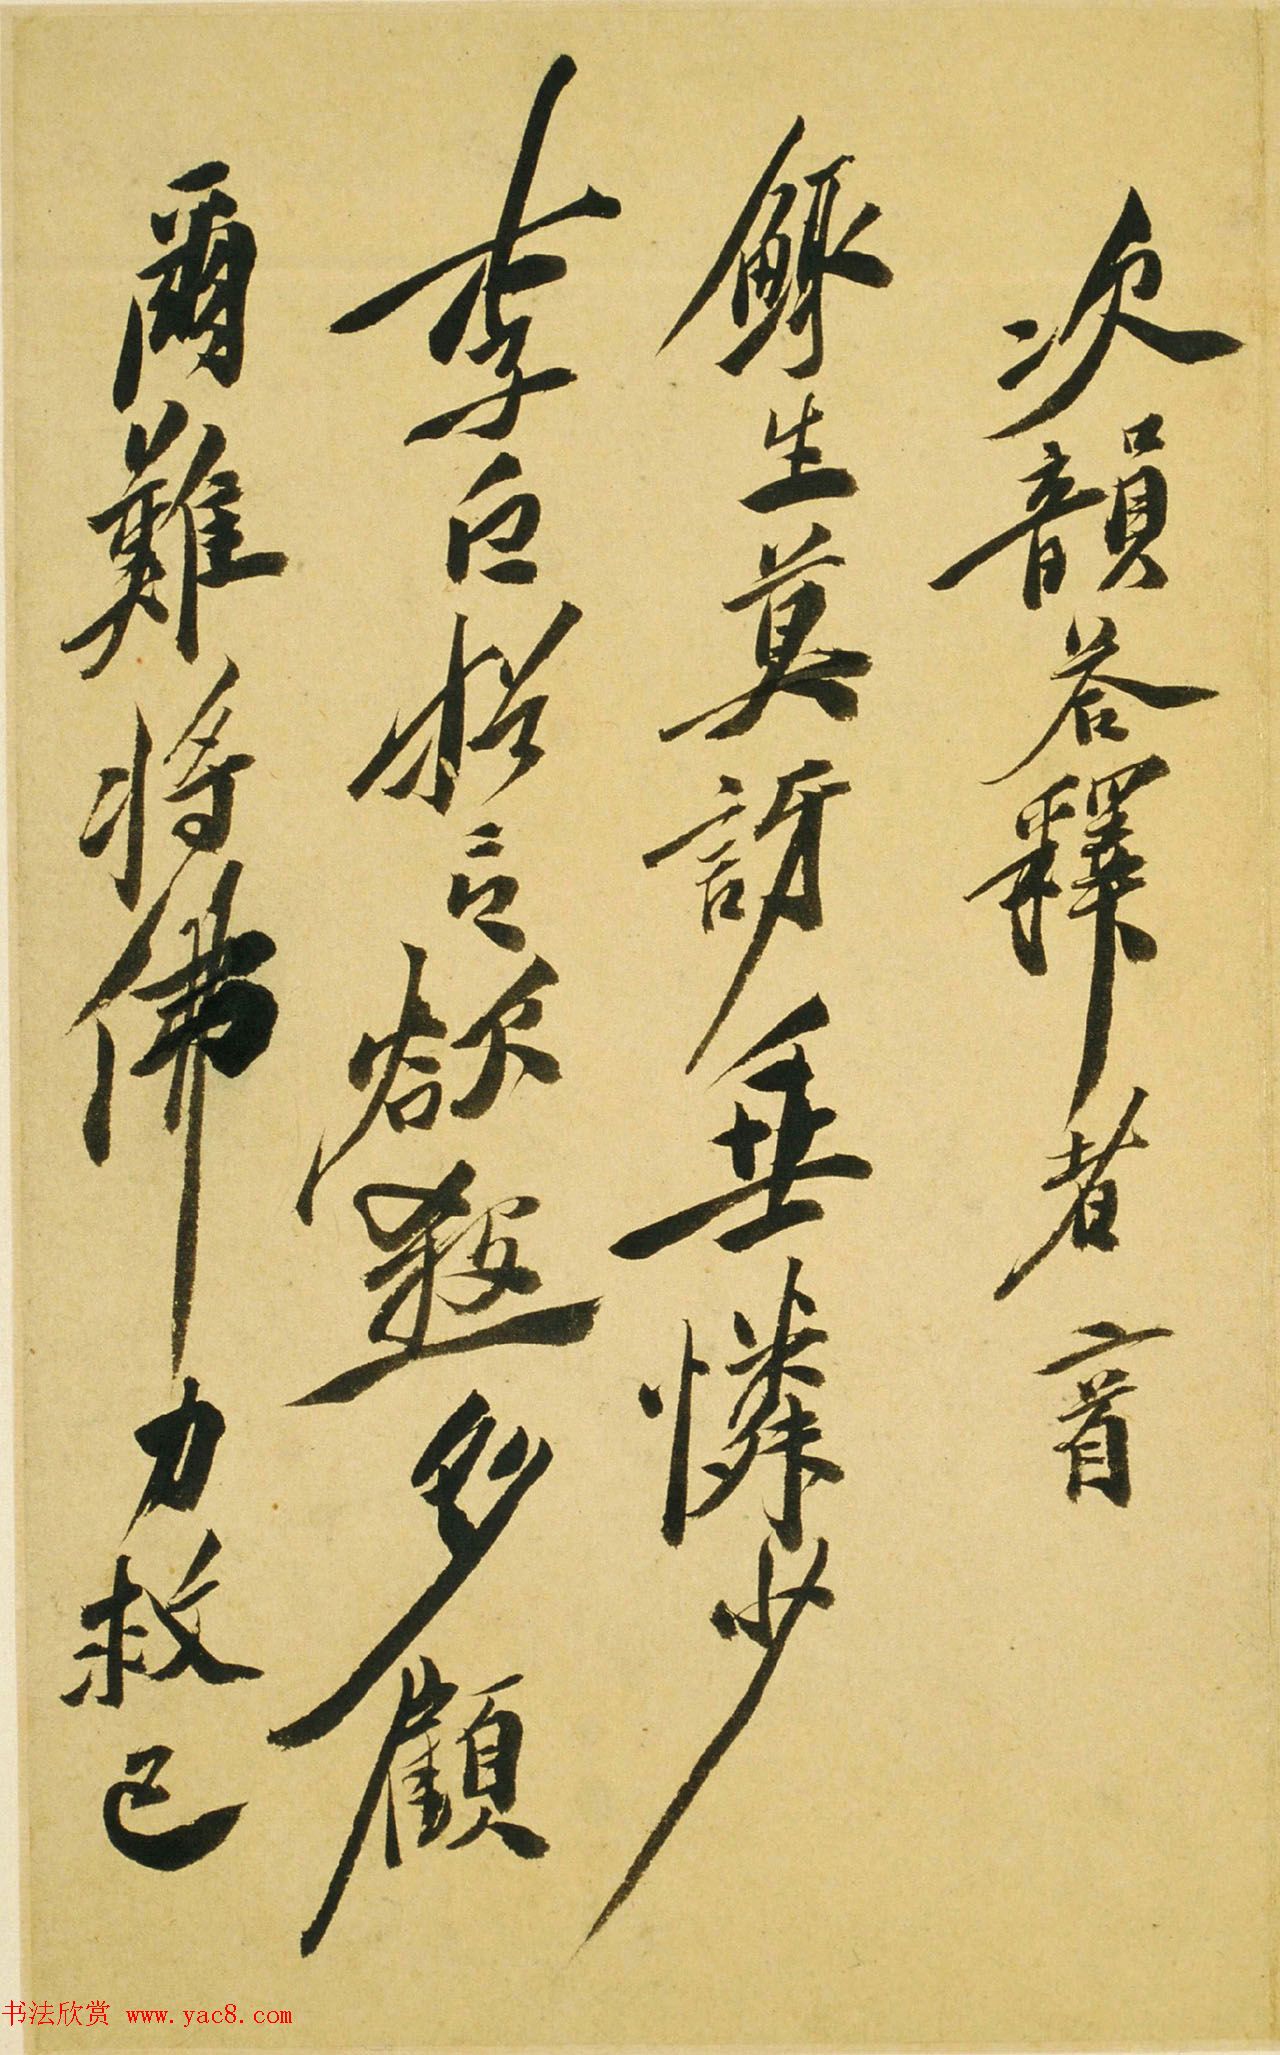 次韻答釋者二首
鯫生莫訝垂憐少
李白言欲殺多顧
爾難將佛力救已
书法欣赏 www.yac8.com